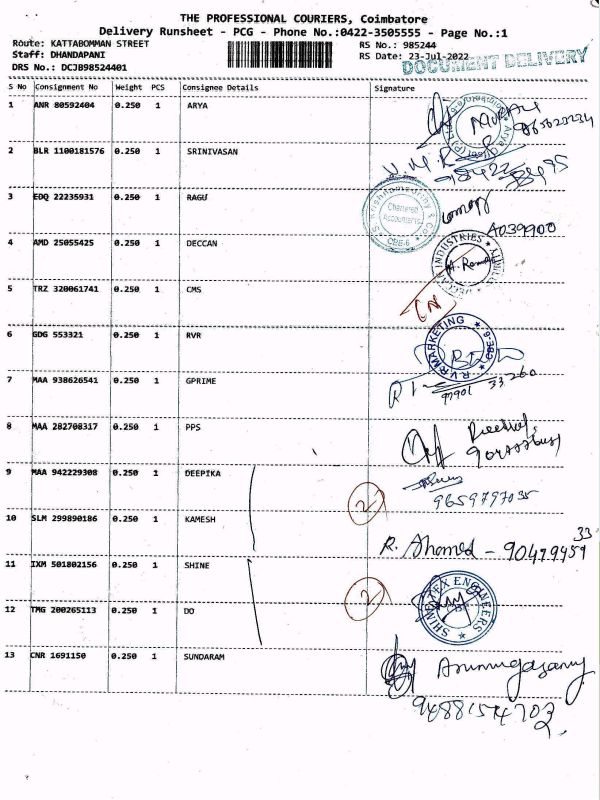 THE PROFESSIONAL COURIERS, Coimbatore
Delivery Runsheet - PCG - Phone No.:0422-3505555 - Page No.:1
Route: KATTABOMMAN STREET RS No.: 985244
Staff: DHANDAPANI RS Date: 23-Jul-2022
DRS No.: DCJB98524401
DOCUMENT DELIVERY
S No Consignment No Weight PCS Consignee Details Signature
1 ANR 80592404 0.250 1 ARYA
2 BLR 1100181576 0.250 1 SRINIVASAN
3 EDQ 22235931 0.250 1 RAGU
Chartered
Accountants
CBE-6
A039900
4 AMD 25055425 0.250 1 DECCAN
INDUSTRIES
5 TRZ 320061741 0.250 1 CMS
6 GDG 553321 0.250 1 RVR
R V R MARKETING CBE-6
7 MAA 938626541 0.250 1 GPRIME
8 MAA 282708317 0.250 1 PPS
9 MAA 942229308 0.250 1 DEEPIKA
2
9659797035
10 SLM 299890186 0.250 1 KAMESH
R. Ahamed - 9047995933
11 IXM 501802156 0.250 1 SHINE
2
12 TMG 200265113 0.250 1 DO
ENGINEERS
13 CNR 1691150 0.250 1 SUNDARAM